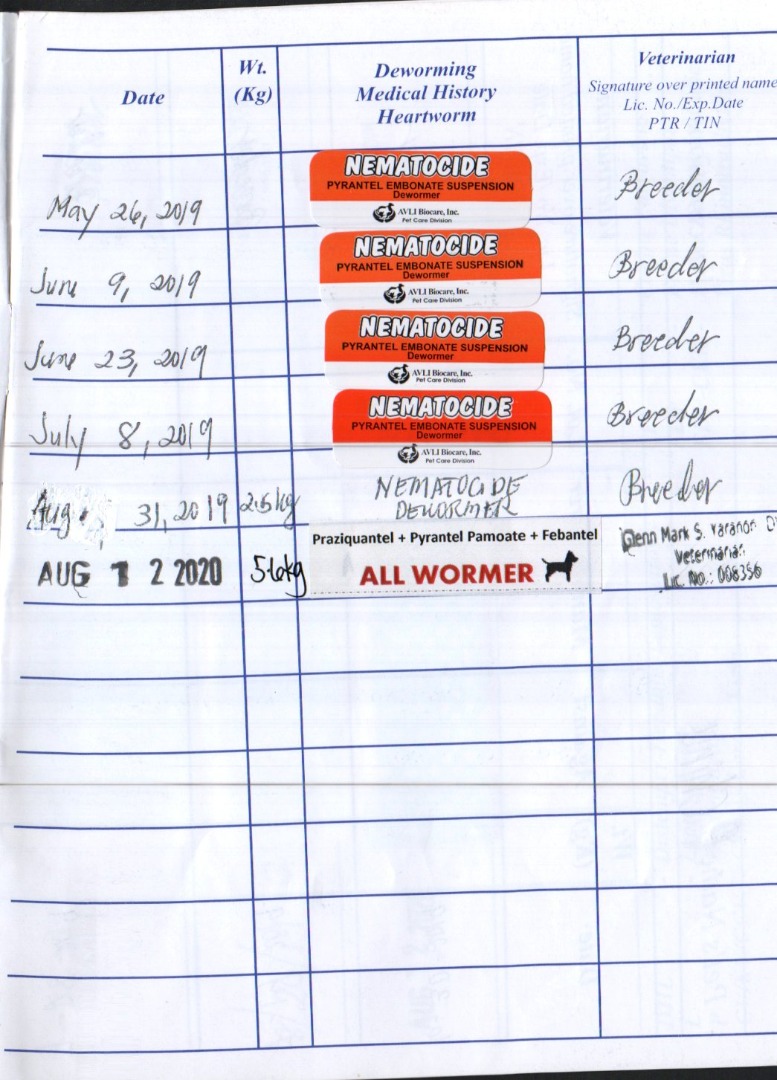 Date
Wt.
(Kg)
Deworming
Medical History
Heartworm
Veterinarian
Signature over printed name
Lic. No./Exp.Date
PTR / TIN
May 26, 2019
NEMATOCIDE
PYRANTEL EMBONATE SUSPENSION
Dewormer
AVLI Biocare, Inc.
Pet Care Division
Breeder
June 9, 2019
NEMATOCIDE
PYRANTEL EMBONATE SUSPENSION
Dewormer
AVLI Biocare, Inc.
Pet Care Division
Breeder
June 23, 2019
NEMATOCIDE
PYRANTEL EMBONATE SUSPENSION
Dewormer
AVLI Biocare, Inc.
Pet Care Division
Breeder
July 8, 2019
NEMATOCIDE
PYRANTEL EMBONATE SUSPENSION
Dewormer
AVLI Biocare, Inc.
Pet Care Division
Breeder
31, 2019
2.5kg
NEMATOCIDE
DEWORMER
Breeder
AUG 12 2020
Praziquantel + Pyrantel Pamoate + Febantel
ALL WORMER
Glenn Mark S.
Veterinarian
Lic. No.: 008356